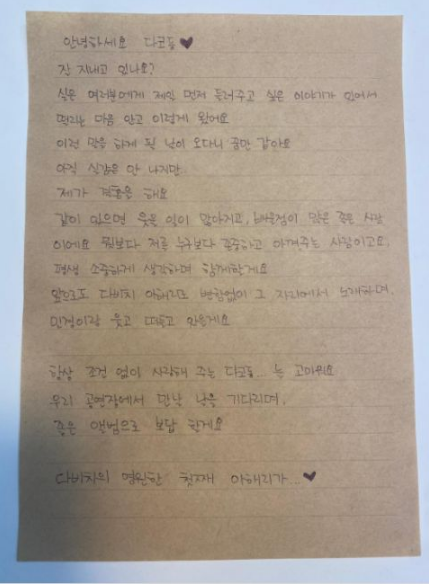 안녕하세요 다코들 ♥
잘 지내고 있나요?
실은 여러분에게 제일 먼저 들려주고 싶은 이야기가 있어서
떨리는 마음 안고 이렇게 왔어요
이런 말을 하게 될 날이 오다니 꿈만 같아요
아직 실감은 안 나지만
제가 결혼을 해요
같이 있으면 웃을 일이 많아지고, 배울점이 많은 좋은 사람
이에요 뭣보다 저를 누구보다 존중하고 아껴주는 사람이고요.
평생 소중하게 생각하며 함께할게요
앞으로도 다비치 이해리로 변함없이 그 자리에서 노래하며,
민경이랑 웃고 떠들고 있을게요
항상 조건 없이 사랑해 주는 다코들... 늘 고마워요
우리 공연장에서 만날 날을 기다리며,
좋은 앨범으로 보답 할게요
다비치의 영원한 첫째 이해리가... ♥